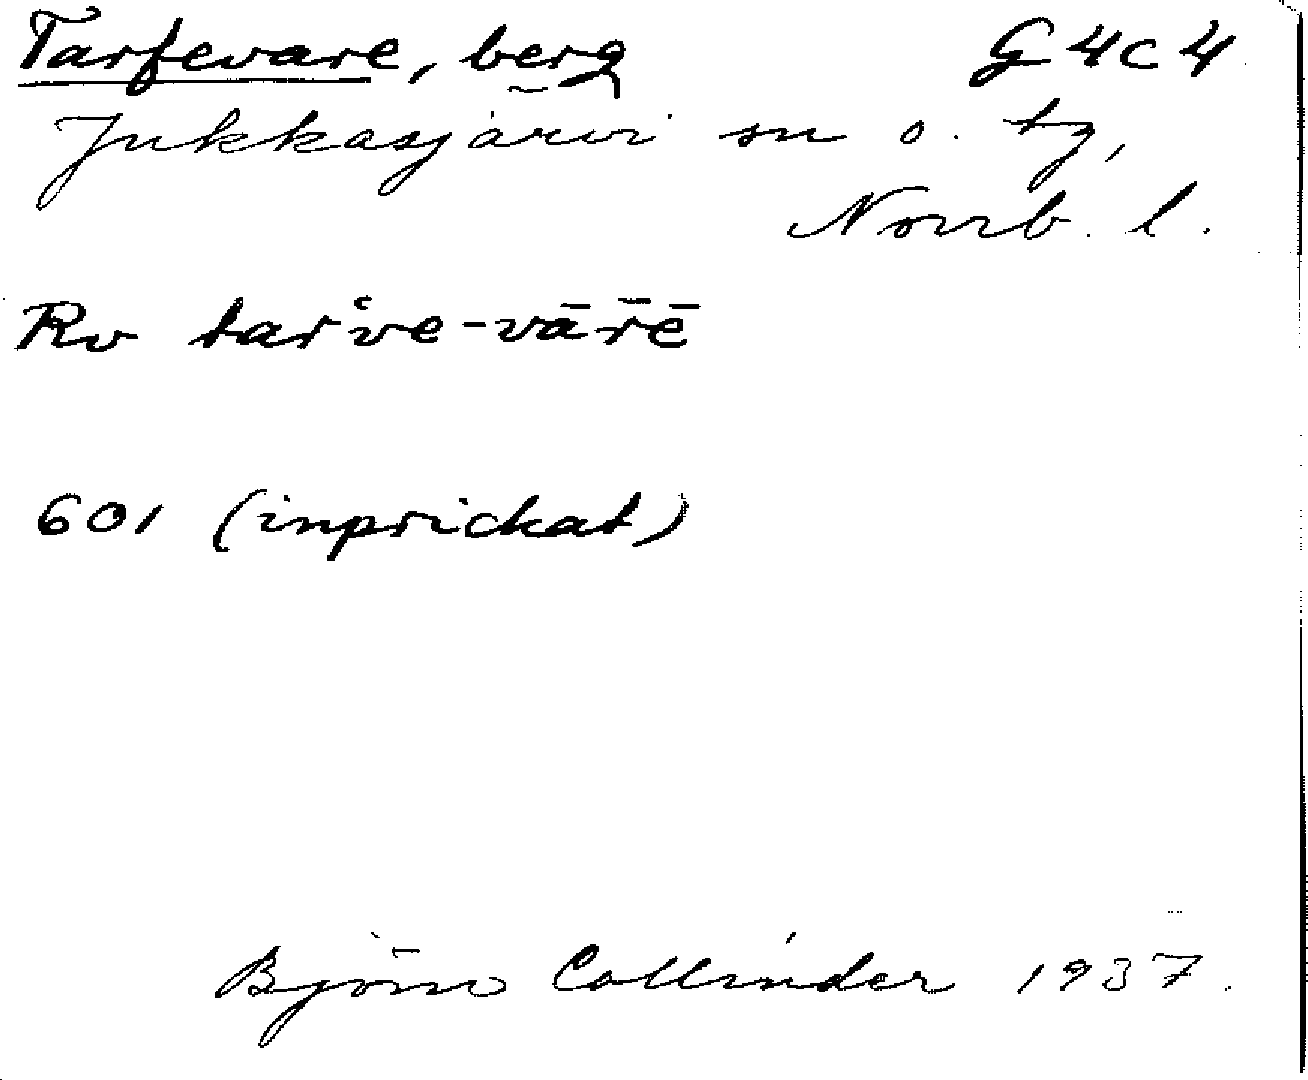 Tarfevare, berg G4c4
Jukkasjärvi sn o. tg,
Norrb. l.
Rv tarv̓e-vār̄ē
601 (inprickat)
Björn Collinder 1937.